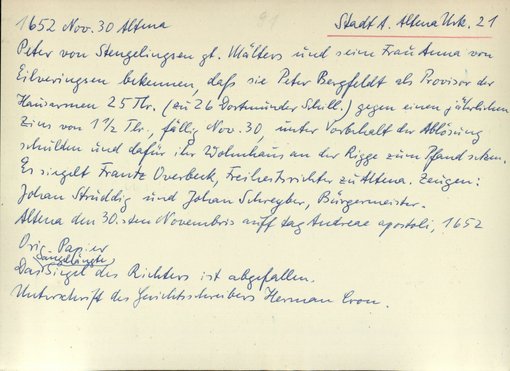 1652 Nov. 30 Altena
91
Stadt A. Altena Urk. 21
Peter von Stengelingsen gt. Wälters und sein Frau Anna von
Eilveringsen bekennen, daß sie Peter Bergfeldt als Provisor der
Hausarmen 25 Tlr. (zu 26 Dortmunder Schill.) gegen einen jährlichen
Zins von 1 1/2 Tlr., fällig Nov. 30, unter Vorbehalt der Ablösung
schulden und dafür ihr Wohnhaus an der Rigge zum Pfand setzen.
Es siegelt Frantz Overbeck, Freiheitsrichter zu Altena. Zeugen:
Johan Struddig und Johan Schreyber, Bürgermeister.
Altena den 30.sten Novembris auff tag Andreae apostoli, 1652
Orig. Papier
Das Siegel des Richters ist abgefallen.
Unterschrift des Gerichtsschreibers Herman Cron.